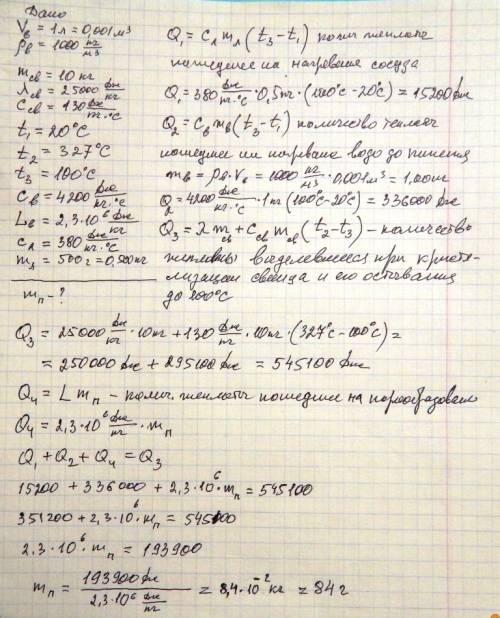 Дано
Vв = 1л = 0,001 м³
ρв = 1000 кг/м³
mсв = 10 кг
λсв = 25000 дж/кг
Cсв = 130 дж/кг·°C
t₁ = 20°C
t₂ = 327°C
t₃ = 100°C
Cв = 4200 дж/кг·°C
Lв = 2,3·10⁶ дж/кг
cл = 380 дж/кг·°C
mл = 500 г = 0,500 кг
mп - ?
Q₁ = cл mл (t₃ - t₁) колич теплоты
пошедшее на нагревание сосуда
Q₁ = 380 дж/кг·°C · 0,5 кг · (100°C - 20°C) = 15200 дж
Q₂ = Cв mв (t₃ - t₁) количество теплоты
пошедшее на нагревание воды до кипения
mв = ρв · Vв = 1000 кг/м³ · 0,001 м³ = 1,00 кг
Q₂ = 4200 дж/кг·°C · 1 кг (100°C - 20°C) = 336000 дж
Q₃ = λ mсв + Cсв mсв (t₂ - t₃) - количество
теплоты выделевшееся при кристал-
лизации свинца и его остывания
до 100°C
Q₃ = 25000 дж/кг · 10 кг + 130 дж/кг · 10 кг · (327°C - 100°C) =
= 250000 дж + 295100 дж = 545100 дж
Q₄ = L mп - колич. теплоты пошедшее на парообразование
Q₄ = 2,3·10⁶ дж/кг · mп
Q₁ + Q₂ + Q₄ = Q₃
15200 + 336000 + 2,3·10⁶ mп = 545100
351200 + 2,3·10⁶ · mп = 545100
2,3·10⁶ · mп = 193900
mп = 193900 дж / 2,3·10⁶ дж/кг = 8,4·10⁻² кг = 84 г